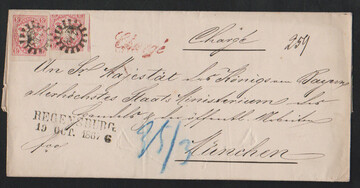 Chargé
Chargé
259
An Se Majestät des Königs von Bayern
Allerhöchstes Staats Ministerium des
Handels & der öffentl. Arbeiten
München
REGENSBURG
19 OCT. 186